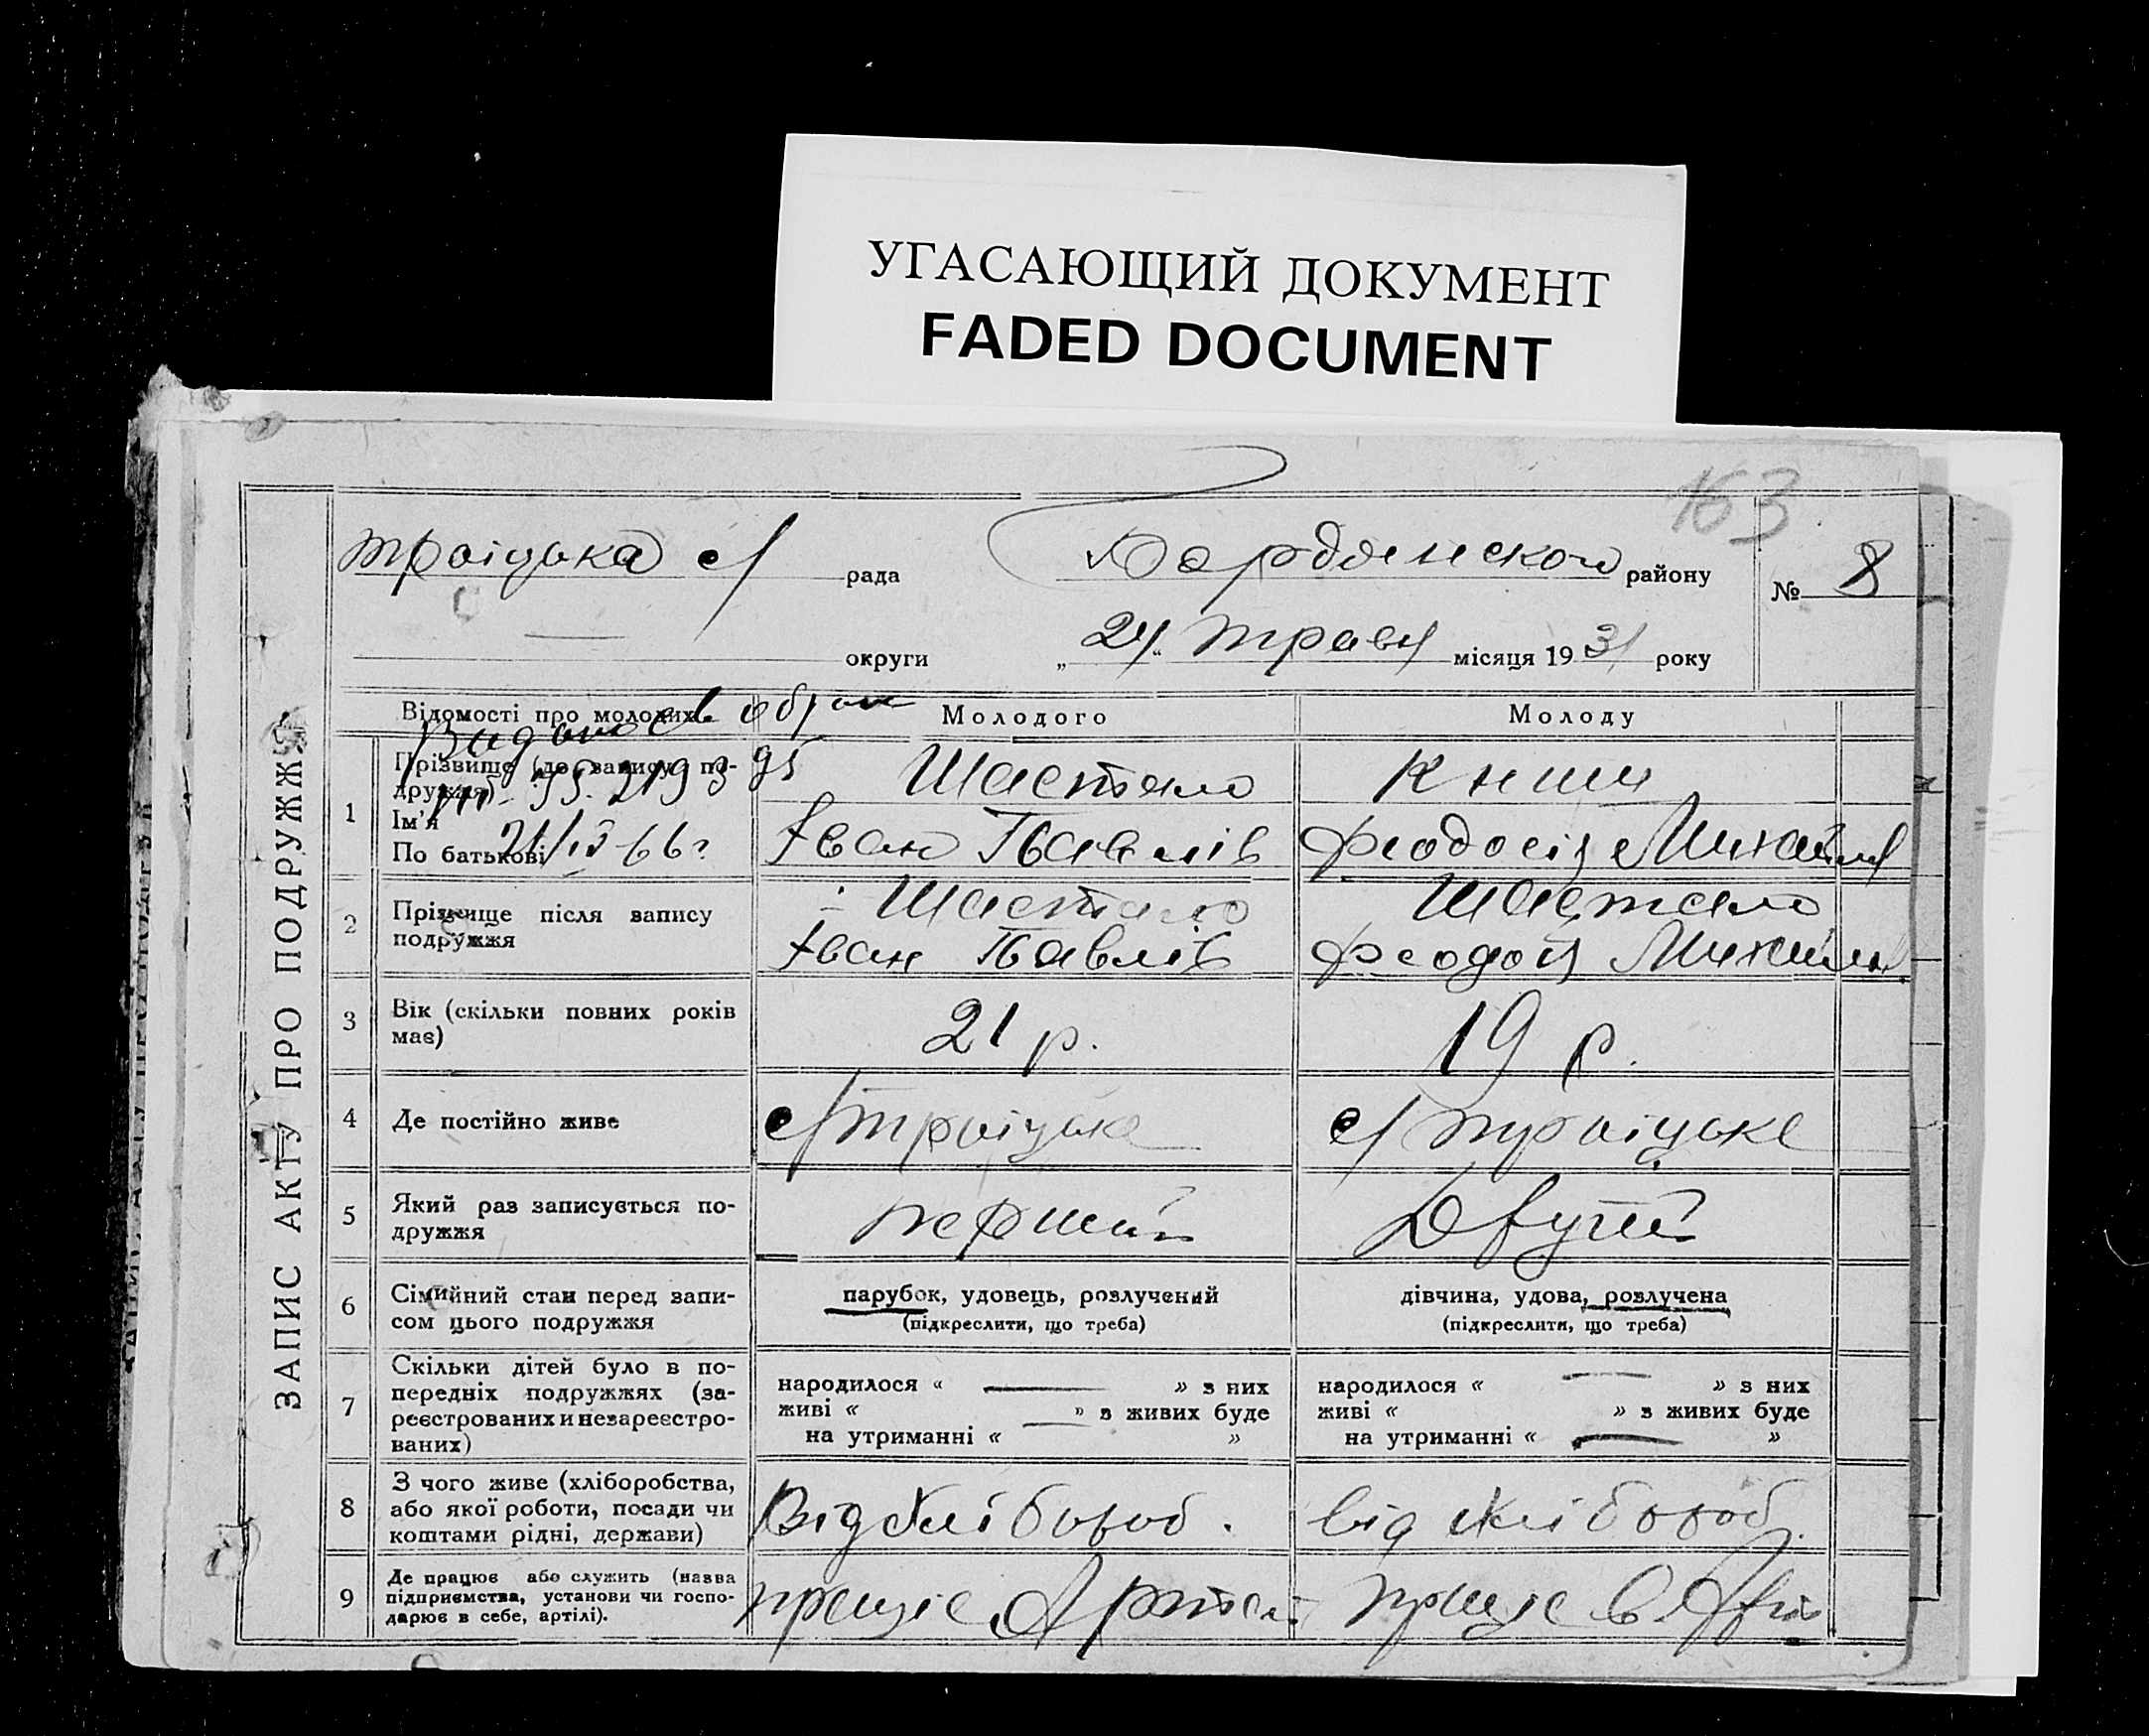 УГАСАЮЩИЙ ДОКУМЕНТ
FADED DOCUMENT
163
ЗАПИС АКТУ ПРО ПОДРУЖЖЯ
Траіцька с/ рада
Бердянского району
№ 8
округи
„24“ травн місяця 1931 року
Відомості про молодих
Молодого
Молоду
1
Прізвище (до запису по-
дружжя)
Ім'я
По батькові
21/IX 66г
Шастало
Іван Павлів
Книш
Феодосія Михайл
2
Прізвище після запису
подружжя
Шастало
Іван Павлів
Шастало
Феодосія Михайл
3
Вік (скільки повних років
має)
21 р.
19 р.
4
Де постійно живе
с/ Траіцьке
с/ Траіцьке
5
Який раз записується по-
дружжя
перший
Другий
6
Сімийний стан перед запи-
сом цього подружжя
парубок, удовець, розлучений
(підкреслити, що треба)
дівчина, удова, розлучена
(підкреслити, що треба)
7
Скільки дітей було в по-
передніх подружжях (за-
реєстрованих и незареєстро-
ваних)
народилося « » з них
живі « » з живих буде
на утриманні « »
народилося « » з них
живі « » з живих буде
на утриманні « »
8
З чого живе (хліборобства,
або якої роботи, посади чи
коштами рідні, держави)
Від хлібороб.
від хлібороб.
9
Де працює або служить (назва
підприємства, установи чи госпо-
дарює в себе, артілі).
працює Артелі
працює в Арт